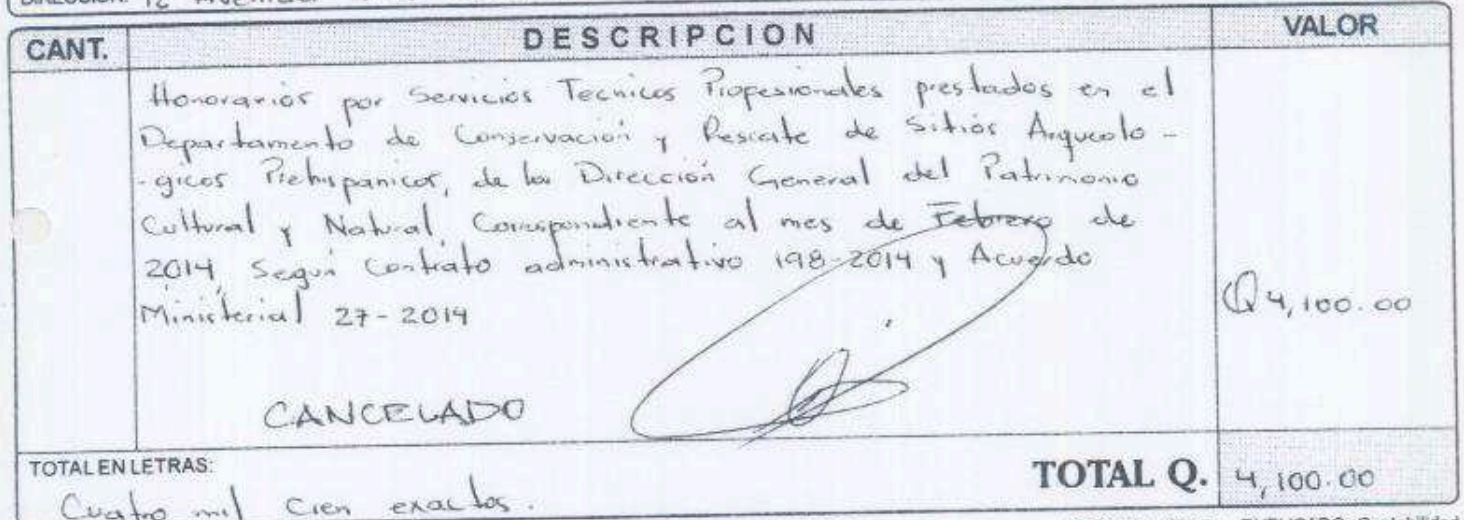 DIRECCION: 12 Avenida
CANT. DESCRIPCION VALOR
Honorarios por Servicios Tecnicos Profesionales prestados en el
Departamento de Conservación y Rescate de Sitios Arqueolo-
-gicos Prehispanicos, de la Dirección General del Patrimonio
Cultural y Natural, Correspondiente al mes de Febrero de
2014, Según Contrato administrativo 198-2014 y Acuerdo
Ministerial 27-2014
Q 4,100.00
CANCELADO
TOTAL EN LETRAS:
Cuatro mil Cien exactos.
TOTAL Q. 4,100.00